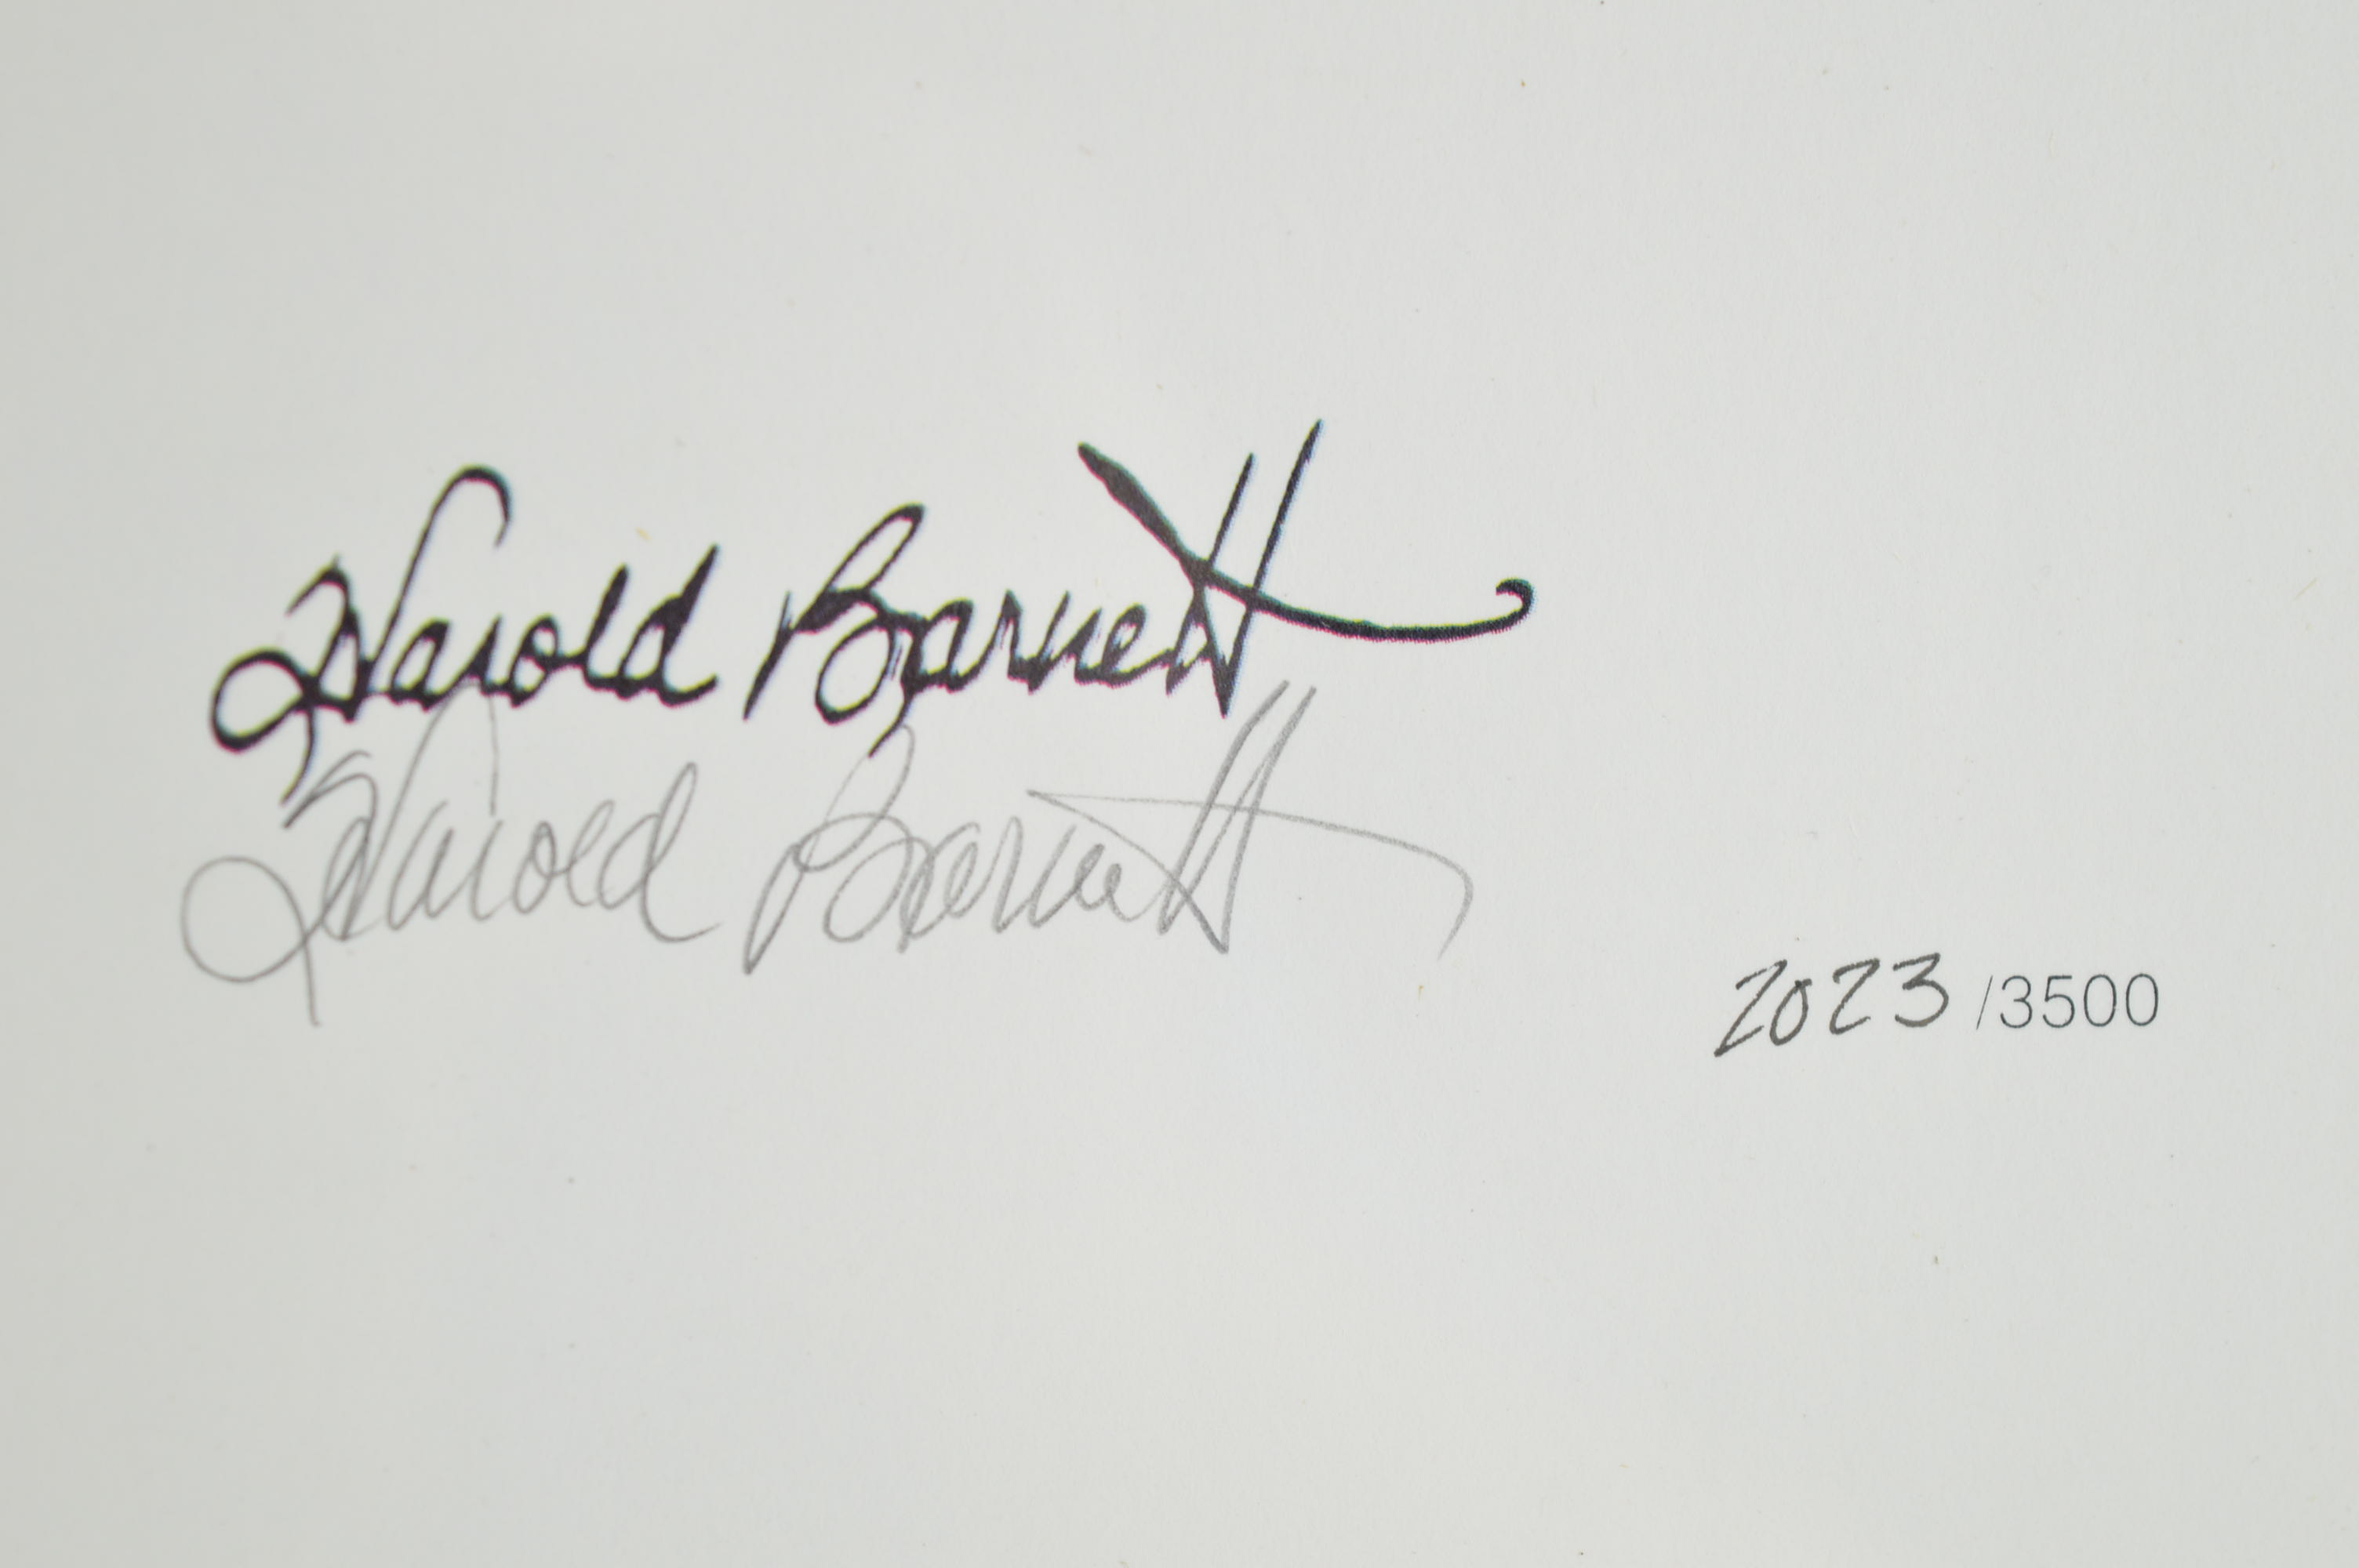 Harold Barnett
Harold Barnett
2023 /3500